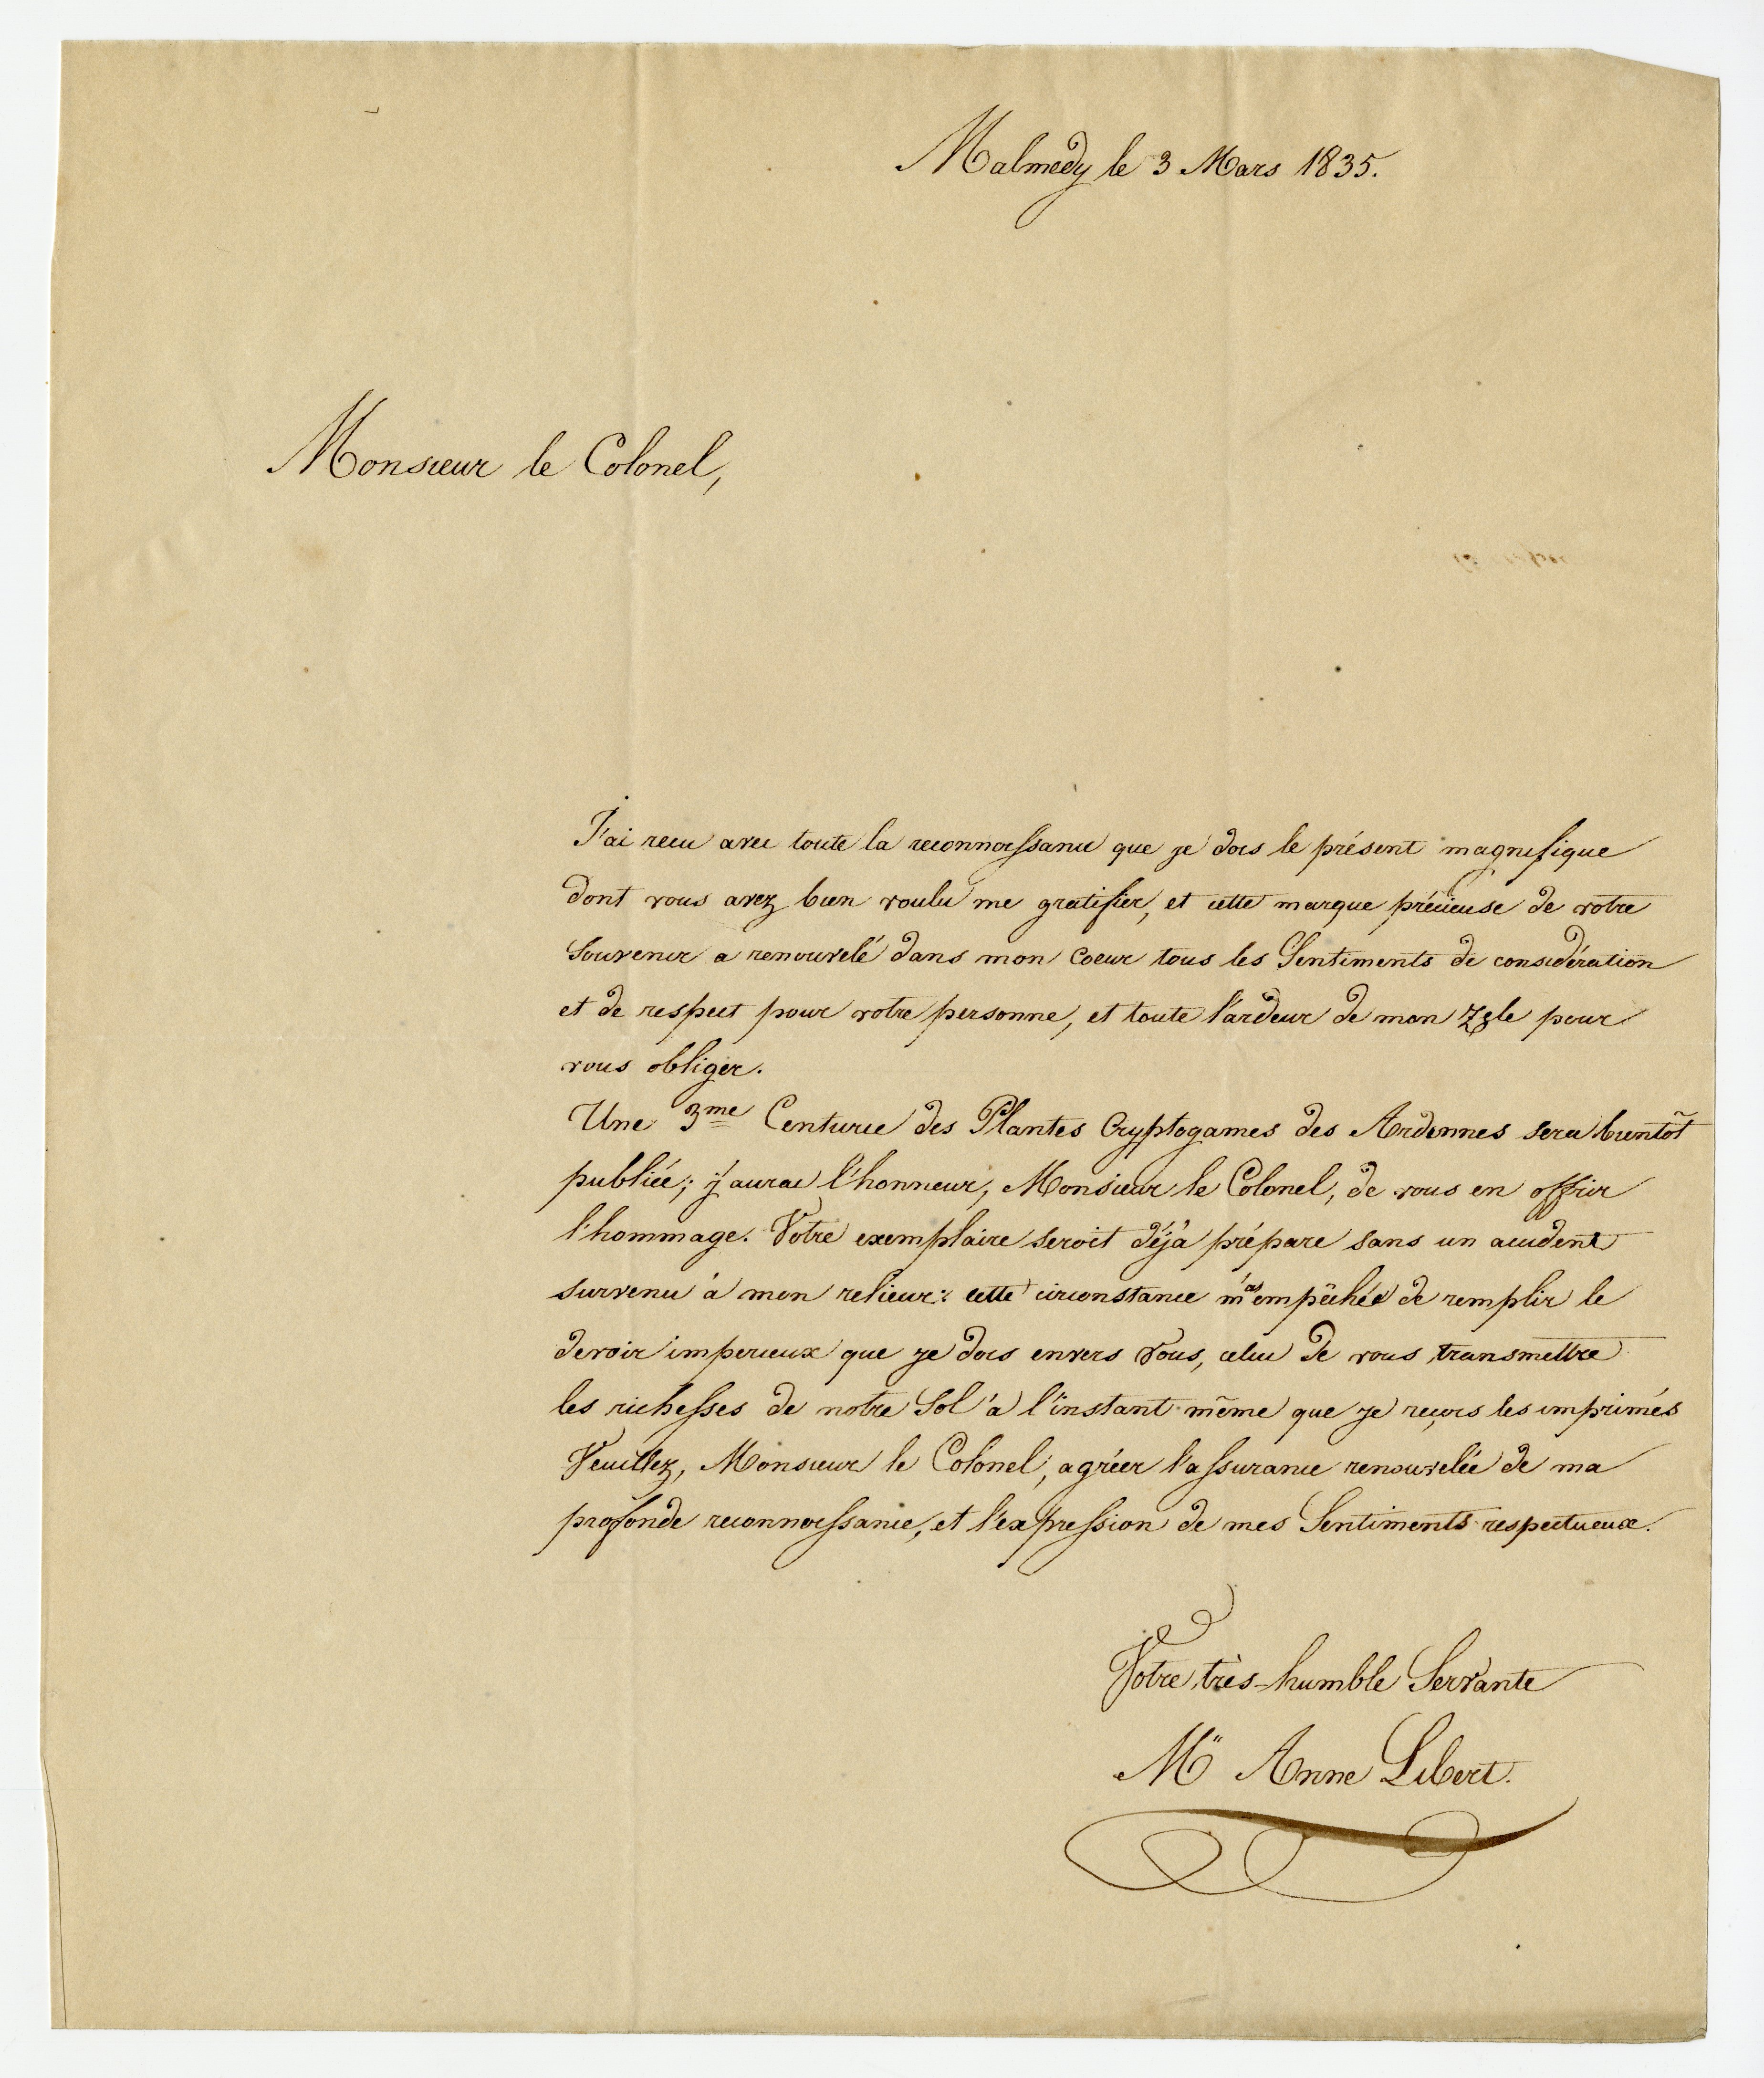 Malmedy le 3 Mars 1835.
Monsieur le Colonel,
J'ai recu avec toute la reconnoissance que je dois le présent magnifique
dont vous avez bien voulu me gratifier, et cette marque précieuse de votre
Souvenir a renouvelé dans mon Coeur tous les Sentiments de considération
et de respect pour votre personne, et toute l'ardeur de mon Zele pour
vous obliger.
Une 3me Centurie des Plantes Cryptogames des Ardennes sera bientôt
publiée; j'aurai l'honneur, Monsieur le Colonel, de vous en offrir
l'hommage. Votre exemplaire seroit déjà préparé sans un accident
survenu à mon relieur: cette circonstance m'a empêchée de remplir le
devoir imperieux que je dois envers Vous, celui de vous transmettre
les richesses de notre Sol à l'instant même que je reçois les imprimés
Veuillez, Monsieur le Colonel, agréer l'assurance renouvelée de ma
profonde reconnoissance, et l'expression de mes Sentiments respectueux.
Votre très-humble Servante
M" Anne Libert.